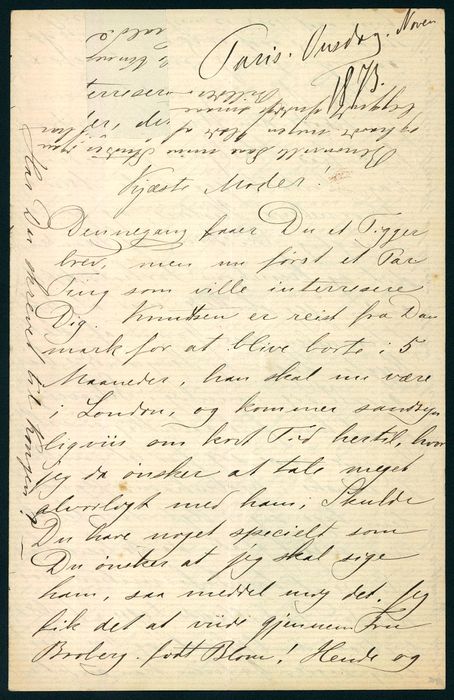 Paris. Onsdag. Novem
1873.
Kjæste Moder!
Dennegang faaer Du et Tigger
brev, men nu först et Par
Ting som ville interresere
Dig. Knudtsen er reist fra Dan
mark for at blive borte i 5
Maaneder, han skal nu være
i London, og kommer sandsyn
ligviis om kort Tid hertil, hvor
jeg da önsker at tale meget
alvorligt med ham, Skulde
Du have noget specielt som
Du önsker at jeg skal sige
ham, saa meddel mig det. Jeg
fik det at viide gjennem Fru
Broberg. född Blom! Hende og
Har Du skrevet til Kongen?